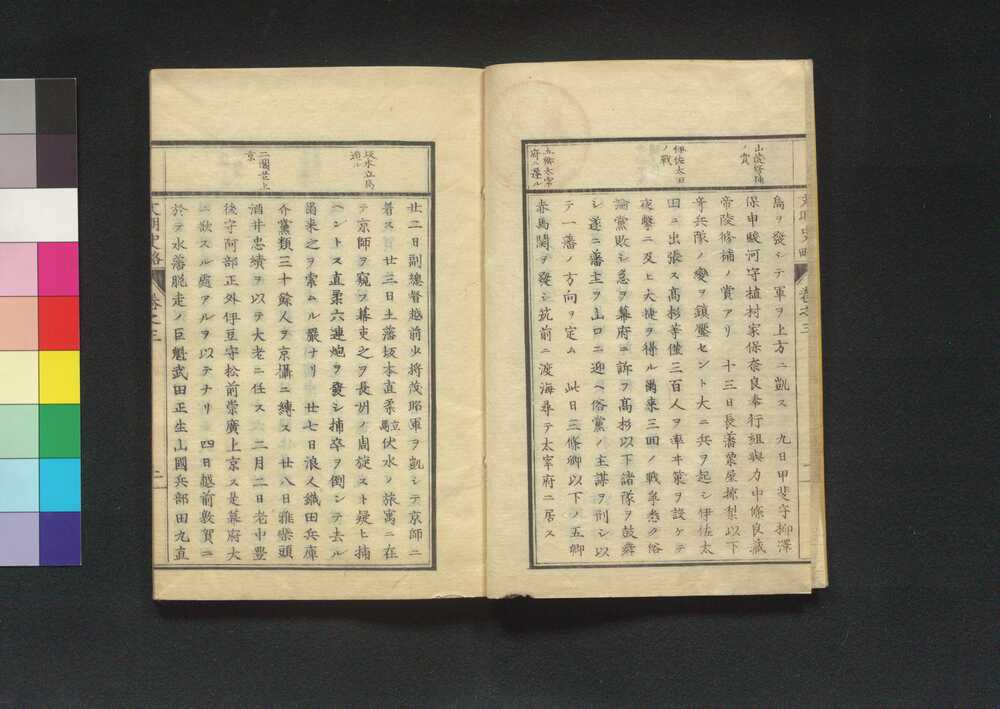 山陵修補
ノ賞
伊佐太田
ノ戰
五卿太宰
府ニ遷ル
文明史略
卷之三
島ヲ發シテ軍ヲ上方ニ凱ス　九日甲斐守柳澤
保申駿河守植村家保奈良奉行組與力中條良藏
帝陵修補ノ賞アリ　十三日長藩粟屋掠梨以下
奇兵隊ノ變ヲ鎭壓セント大ニ兵ヲ起シ伊佐太
田ニ出張ス高杉等僅三百人ヲ率ヰ策ヲ設ケテ
夜擊ニ及ヒ大捷ヲ得ル爾来三回ノ戰爭悉ク俗
論黨敗シ急ヲ幕府ニ訴ヲ高杉以下諸隊ヲ鼓舞
シ遂ニ藩主ヲ山口ニ迎ヘ俗黨ノ主謀ヲ刑シ以
テ一藩ノ方向ヲ定ム　此日三條卿以下ノ五卿
赤馬關ヲ發シ筑前ニ渡海尋テ太宰府ニ居ス
坂本立馬
遁ル
二閣老上
京
廿二日副總督越前少將茂昭軍ヲ凱シテ京師ニ
着ス　廿三日土藩坂本直柔立馬伏水ノ旅寓ニ在
テ京師ヲ窺フ幕吏之ヲ長州ノ周旋スト疑ヒ捕
ヘントス直柔六連炮ヲ發シ捕卒ヲ倒シテ去ル
爾来之ヲ索ムル嚴ナリ　廿七日浪人織田兵庫
介黨類三十餘人ヲ京攝ニ縛ス　廿八日雅樂頭
酒井忠績ヲ以テ大老ニ任ス　二月二日老中豊
後守阿部正外伊豆守松前崇廣上京ス是幕府大
ニ欲スル處アルヲ以テナリ　四日越前敦賀ニ
於テ水藩脫走ノ巨魁武田正生山國兵部田丸直
文明史略
卷之三
二